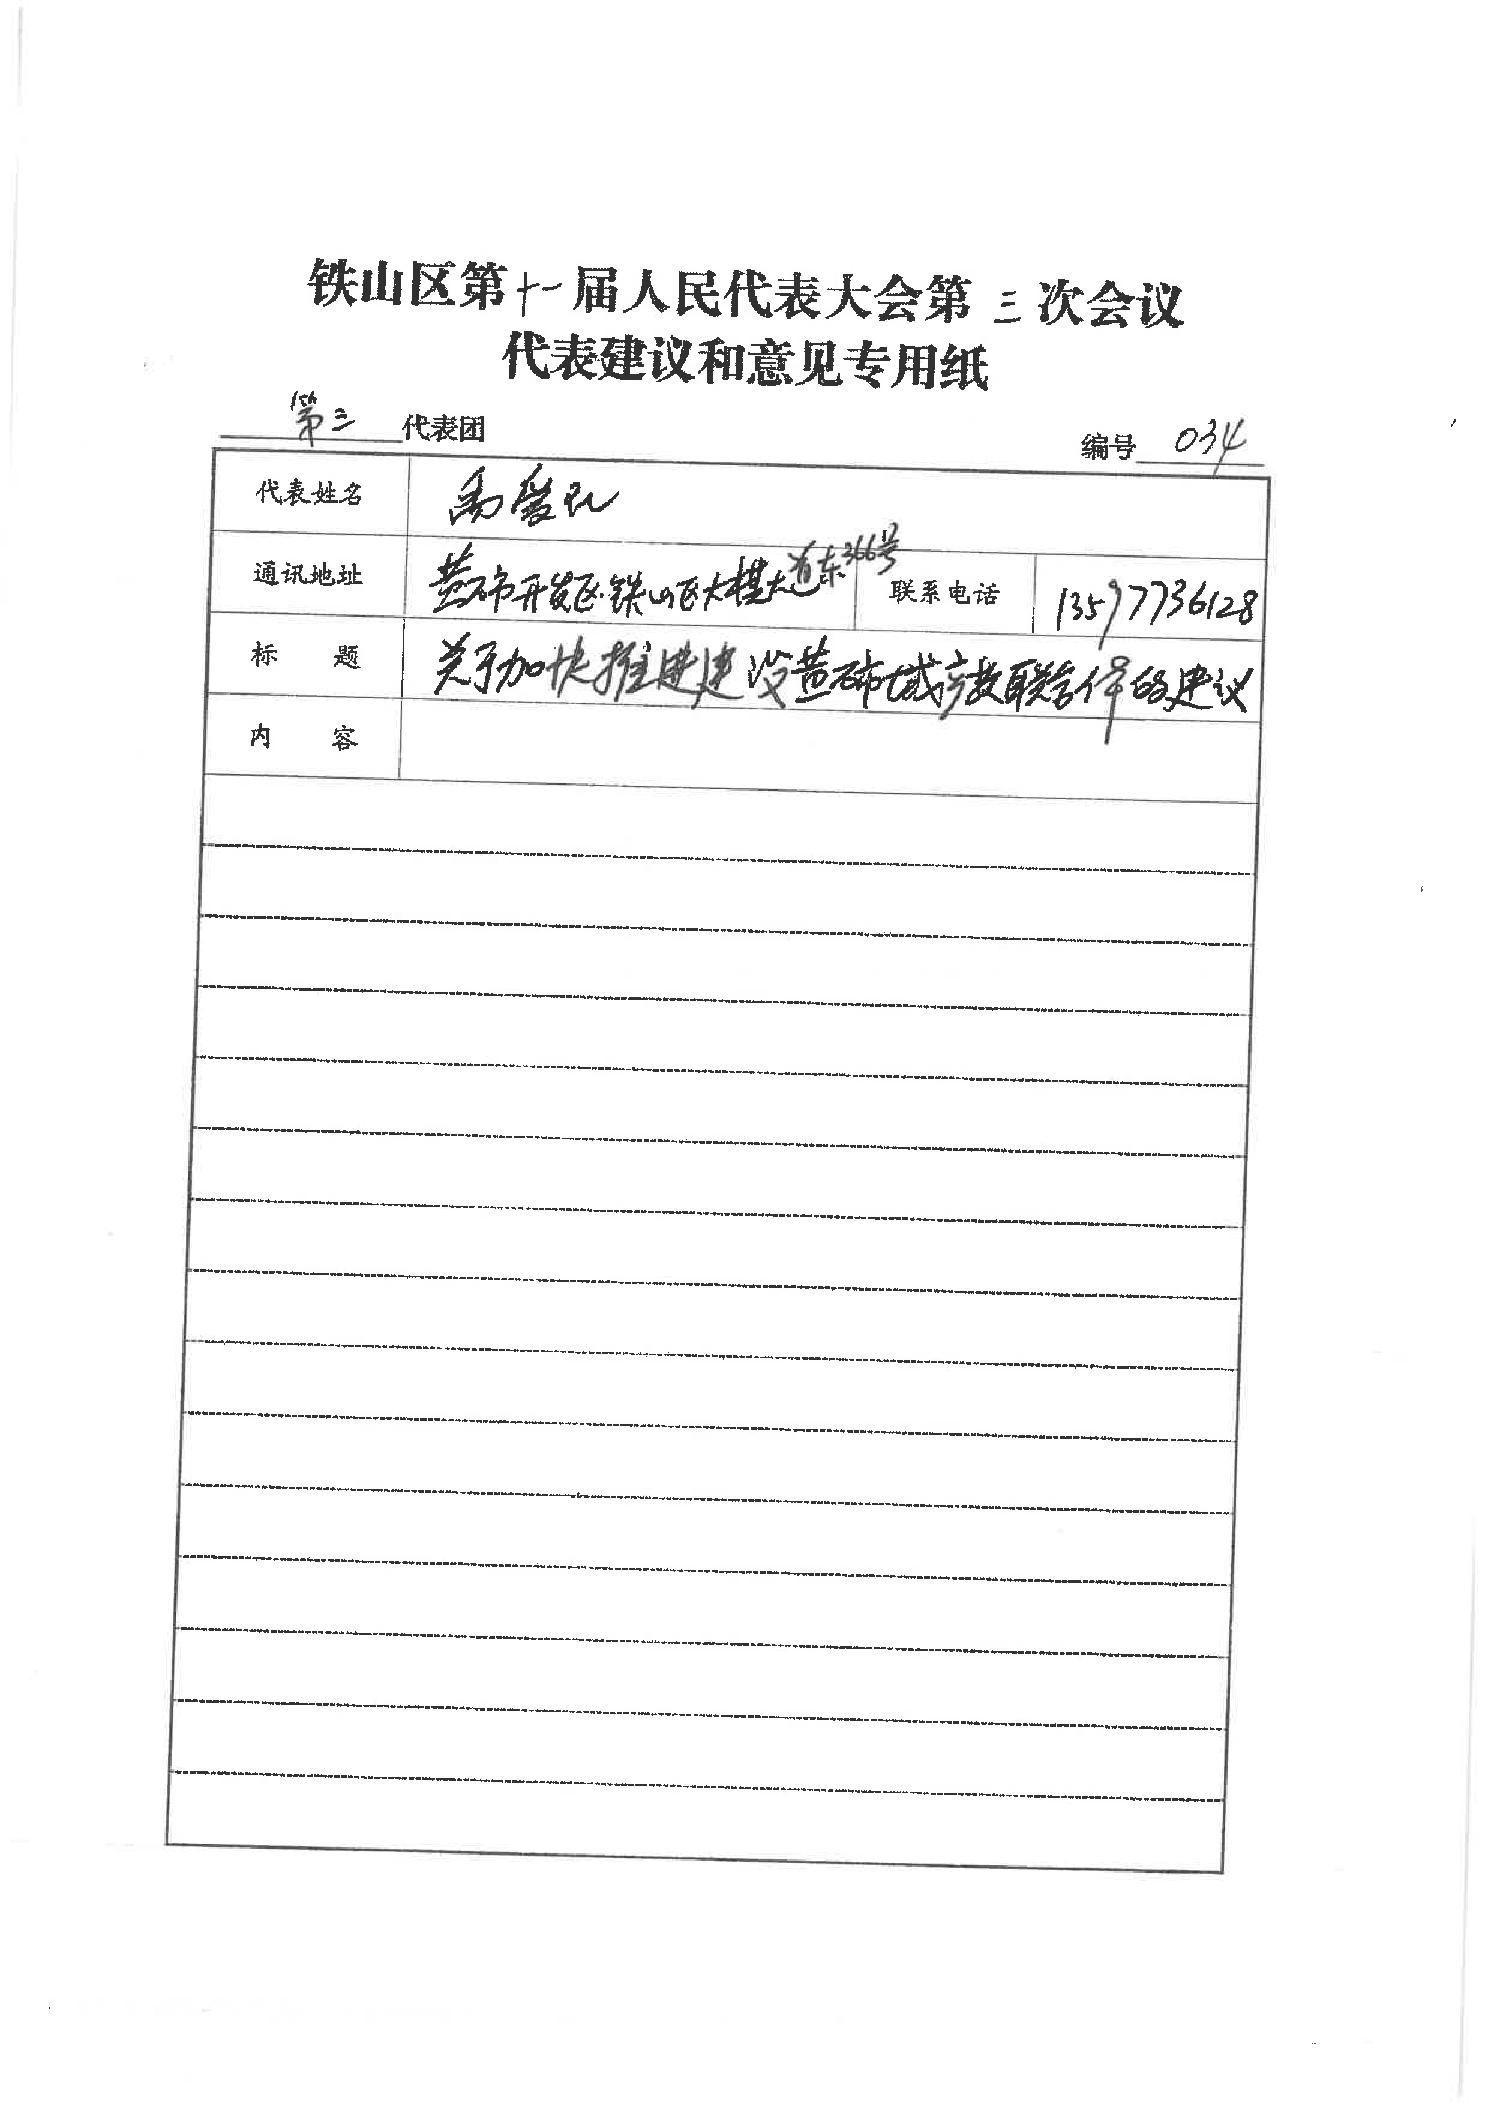 铁山区第十一届人民代表大会第三次会议
代表建议和意见专用纸
第三代表团 编号 034
代表姓名 禹爱民
通讯地址 黄石市开发区·铁山区大棋大道东366号 联系电话 13597736128
标 题 关于加快推进建设黄石市域产教联合体的建议
内 容